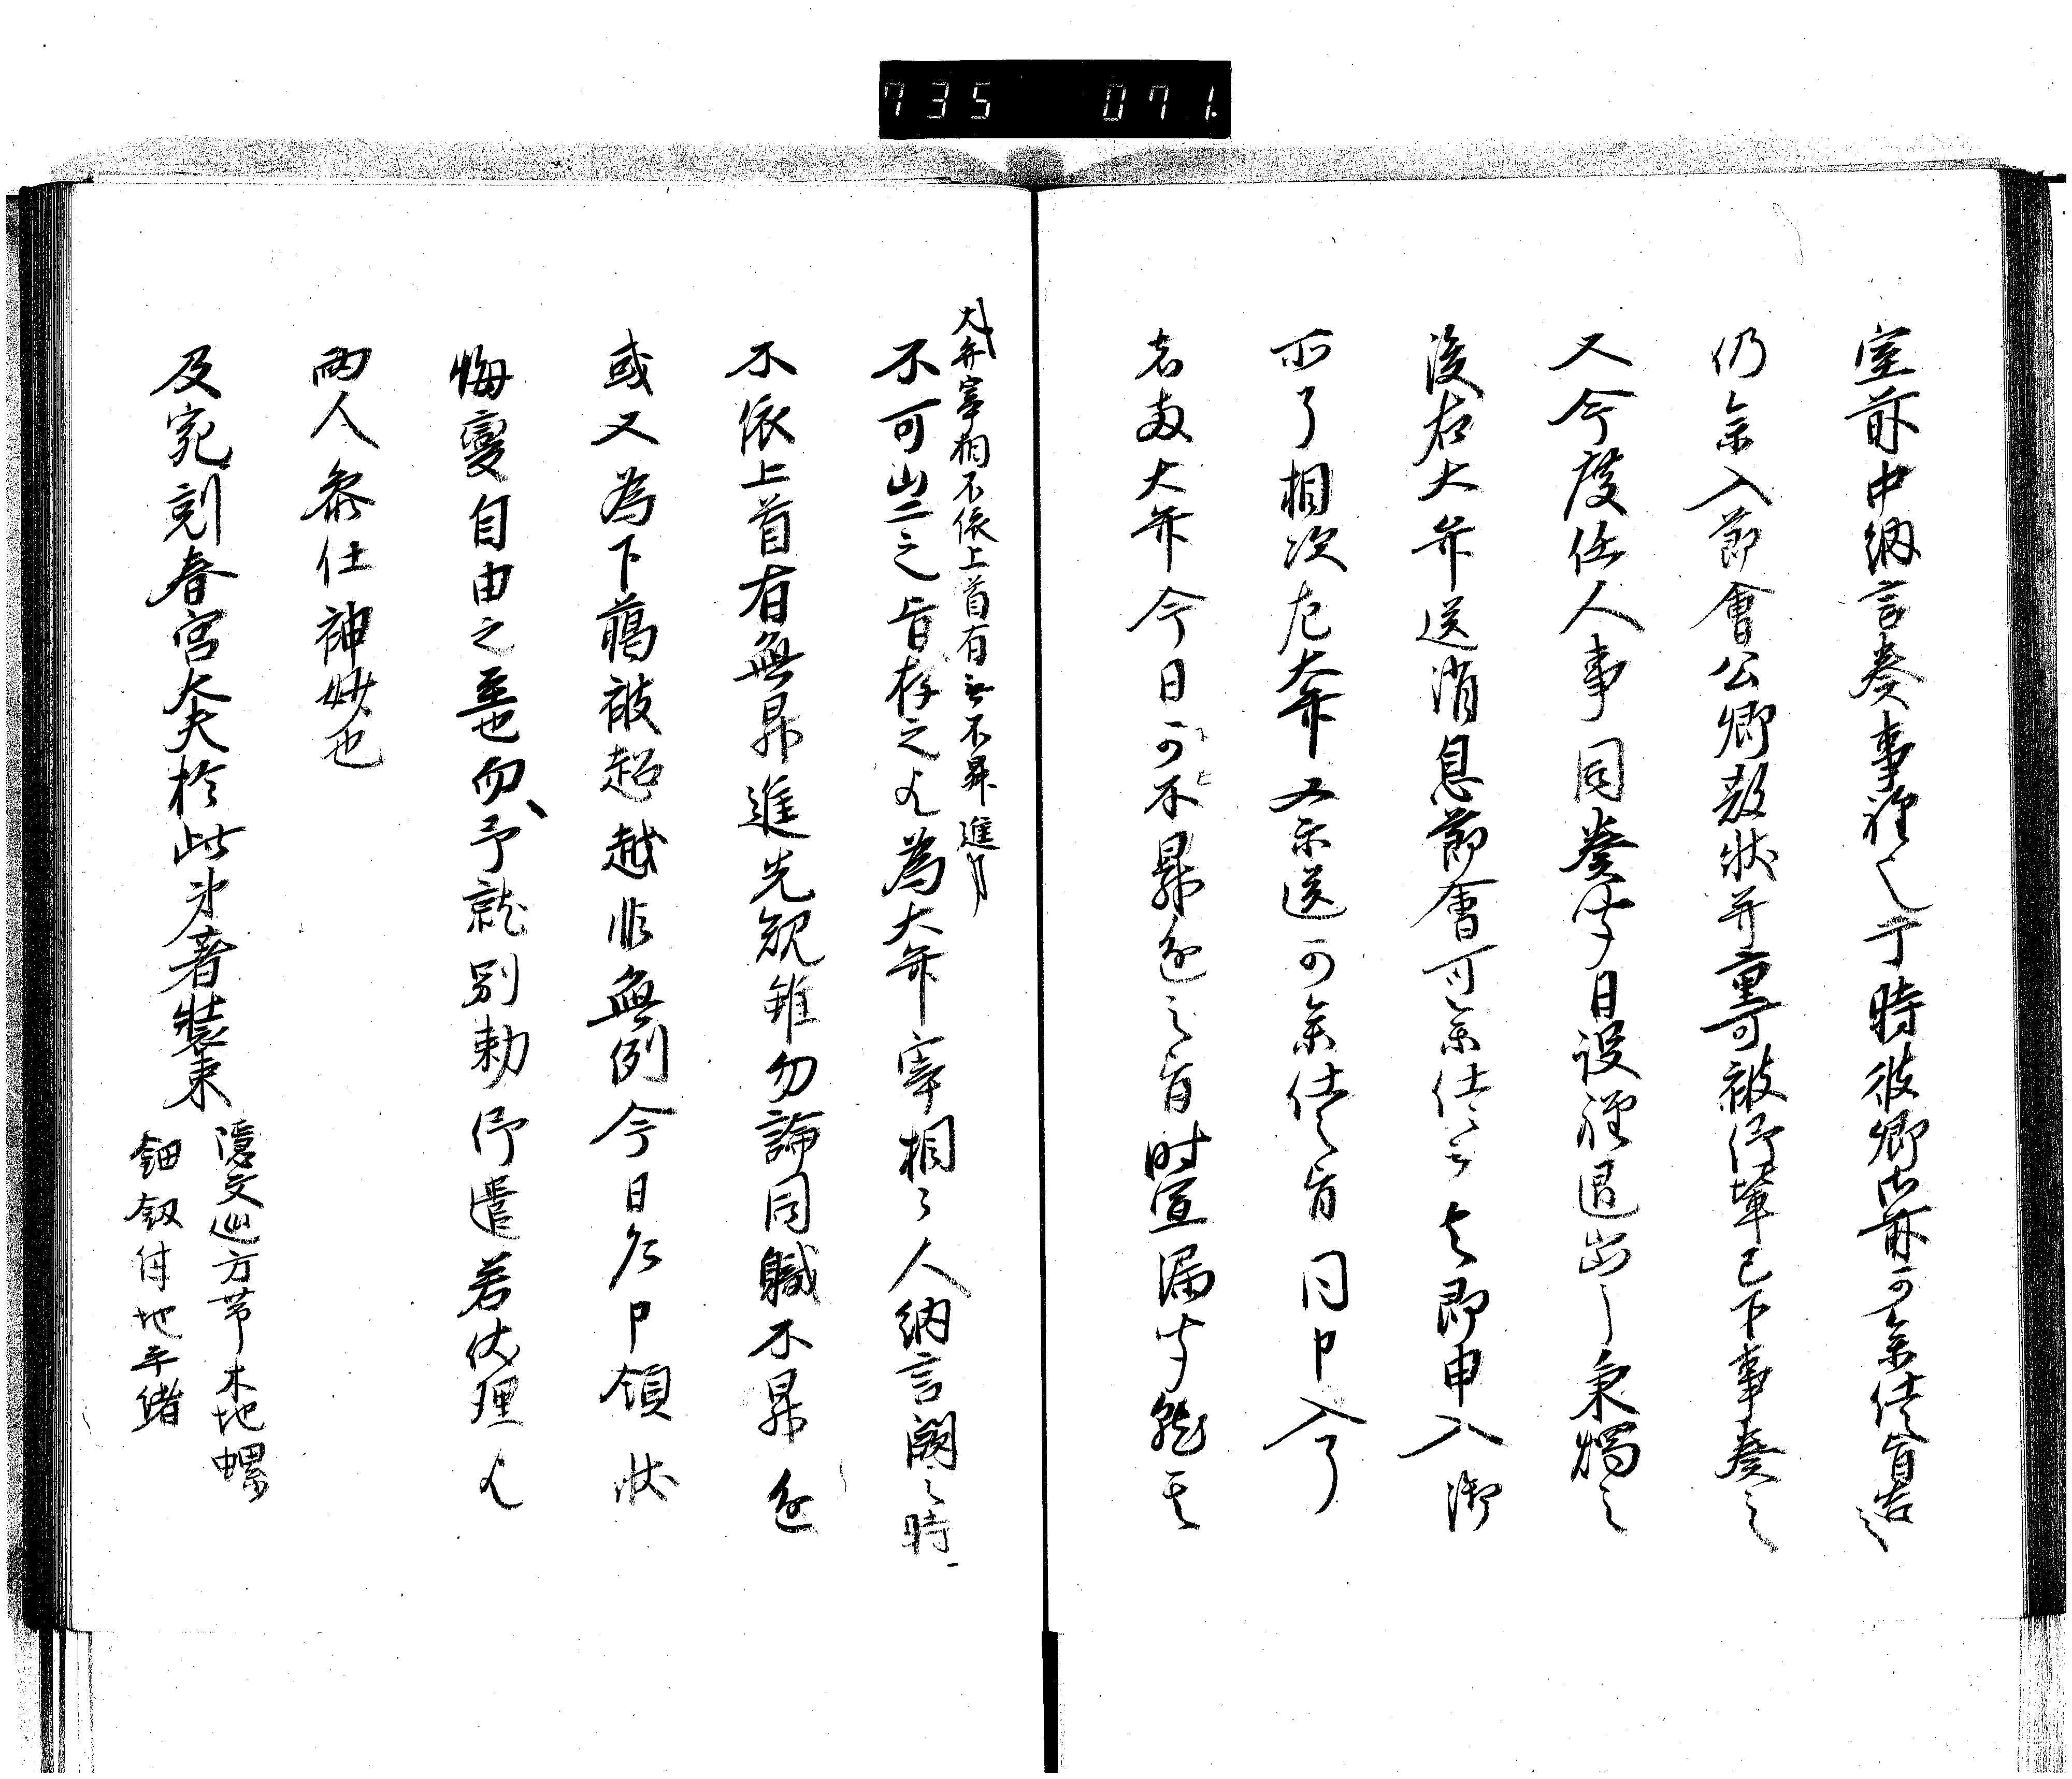 735 071
室前中納言奏事程也于時彼卿御前可参仕旨告之
仍参入節会公卿散状并重可被仰輩已下事奏之
又今度任人事同奏聞日没程退出了秉燭之
後右大弁送消息節会可参仕云々即申入御
所了相次左大弁又示送可参仕之旨同申入了
者両大弁今日可不昇進之旨時宣漏聞訖其
大弁宰相不依上首有無不昇進事
不可出之旨存之凡為大弁宰相之人納言闕之時
不依上首有無昇進先規雖勿論同職不昇進
或又為下﨟被超越非無例今日各申領状
悔変自由之至也而予就別勅仰遣若伏理歟
両人参仕神妙也
及寅刻春宮大夫於此亭着装束
隠文巡方帯木地螺
鈿釼付地平緒